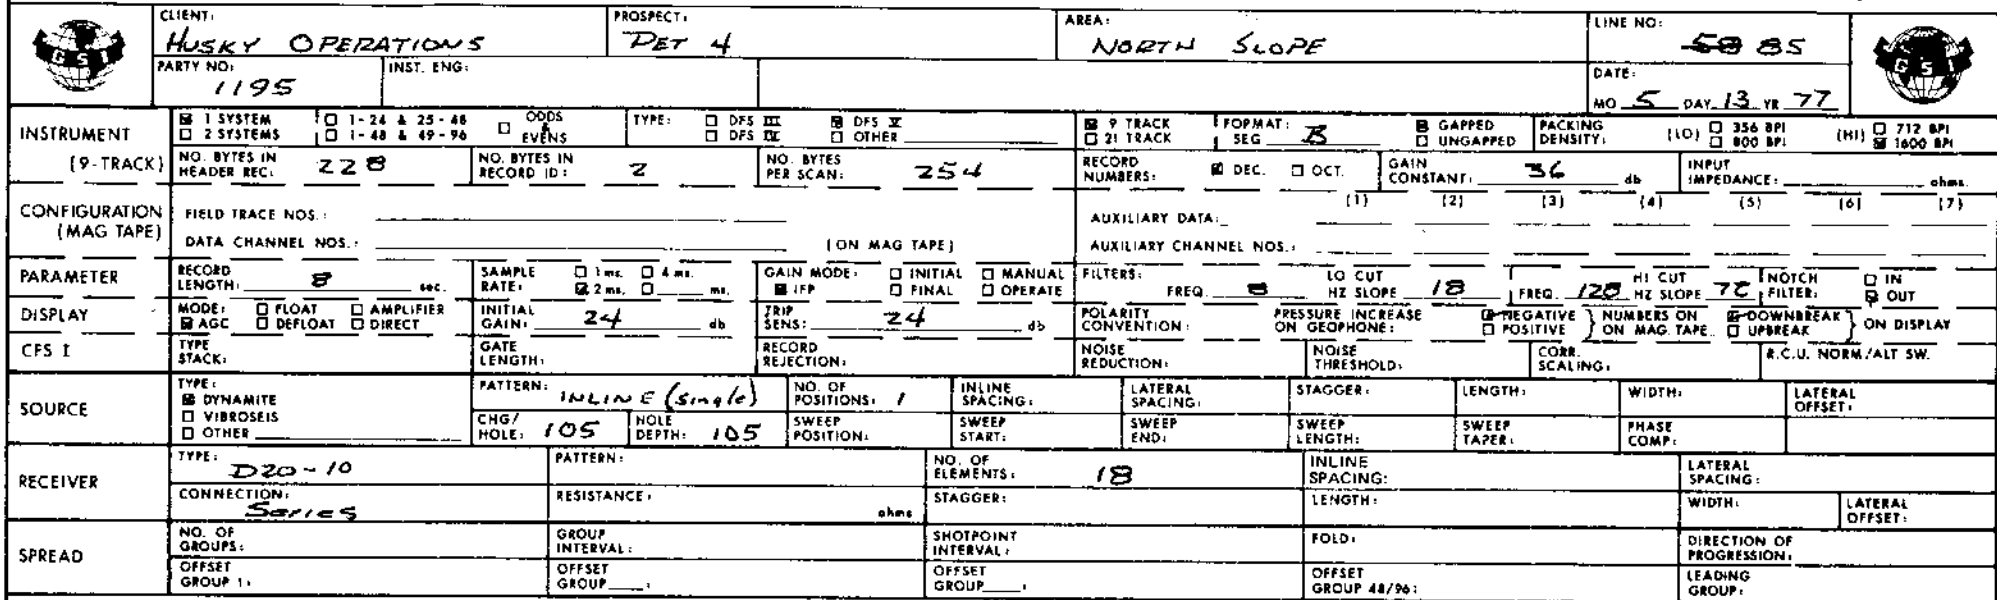 CLIENT: HUSKY OPERATIONS PROSPECT: PET 4 AREA: NORTH SLOPE LINE NO: 58 85
GSI GSI
PARTY NO: 1195 INST. ENG: DATE: MO 5 DAY 13 YR 77
INSTRUMENT (9-TRACK)
1 SYSTEM 1-24 & 25-48 ODDS & EVENS TYPE: DFS III DFS V 9 TRACK FORMAT: SEG B GAPPED PACKING DENSITY: (LO) 356 BPI (HI) 712 BPI
2 SYSTEMS 1-48 & 49-96 DFS IV OTHER 21 TRACK UNGAPPED 800 BPI 1600 BPI
NO. BYTES IN HEADER REC: 228 NO. BYTES IN RECORD ID: 2 NO. BYTES PER SCAN: 254 RECORD NUMBERS: DEC. OCT. GAIN CONSTANT: 36 db INPUT IMPEDANCE: ohms
CONFIGURATION (MAG TAPE)
(1) (2) (3) (4) (5) (6) (7)
FIELD TRACE NOS.: AUXILIARY DATA:
DATA CHANNEL NOS.: (ON MAG TAPE) AUXILIARY CHANNEL NOS.:
PARAMETER RECORD LENGTH: 8 sec. SAMPLE RATE: 1 ms. 4 ms. 2 ms. ms. GAIN MODE: INITIAL MANUAL IFP FINAL OPERATE FILTERS: FREQ 8 LO CUT HZ SLOPE 18 FREQ. 128 HI CUT HZ SLOPE NOTCH FILTER: IN OUT
DISPLAY MODE: FLOAT AMPLIFIER AGC DEFLOAT DIRECT INITIAL GAIN: 24 db TRIP SENS: 24 db POLARITY CONVENTION: PRESSURE INCREASE ON GEOPHONE: NEGATIVE POSITIVE NUMBERS ON ON MAG. TAPE DOWNBREAK UPBREAK ON DISPLAY
CFS I TYPE STACK: GATE LENGTH: RECORD REJECTION: NOISE REDUCTION: NOISE THRESHOLD: CORR. SCALING: R.C.U. NORM/ALT SW.
SOURCE TYPE: DYNAMITE VIBROSEIS OTHER
PATTERN: INLINE (Single) NO. OF POSITIONS: 1 INLINE SPACING: LATERAL SPACING: STAGGER: LENGTH: WIDTH: LATERAL OFFSET:
CHG/HOLE: 105 HOLE DEPTH: 105 SWEEP POSITION: SWEEP START: SWEEP END: SWEEP LENGTH: SWEEP TAPER: PHASE COMP:
RECEIVER TYPE: D20-10 PATTERN: NO. OF ELEMENTS: 18 INLINE SPACING: LATERAL SPACING:
CONNECTION: Series RESISTANCE: ohms STAGGER: LENGTH: WIDTH: LATERAL OFFSET:
SPREAD NO. OF GROUPS: GROUP INTERVAL: SHOTPOINT INTERVAL: FOLD: DIRECTION OF PROGRESSION:
OFFSET GROUP 1: OFFSET GROUP : OFFSET GROUP : OFFSET GROUP 48/96: LEADING GROUP: